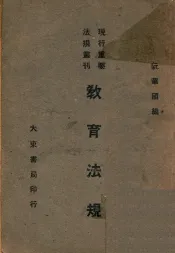 現行重要
法規叢刊
教育法規
大東書局印行